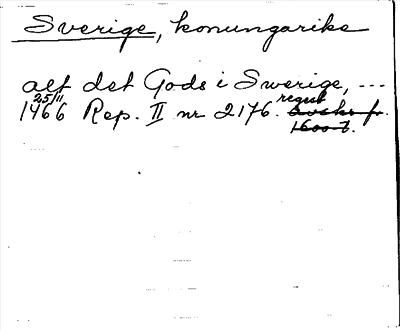 Sverige, konungarike
alt det Gods i Swerige, ---
25/11
1466 Rep. II nr 2176. regest Avskr. fr.
1600-t.